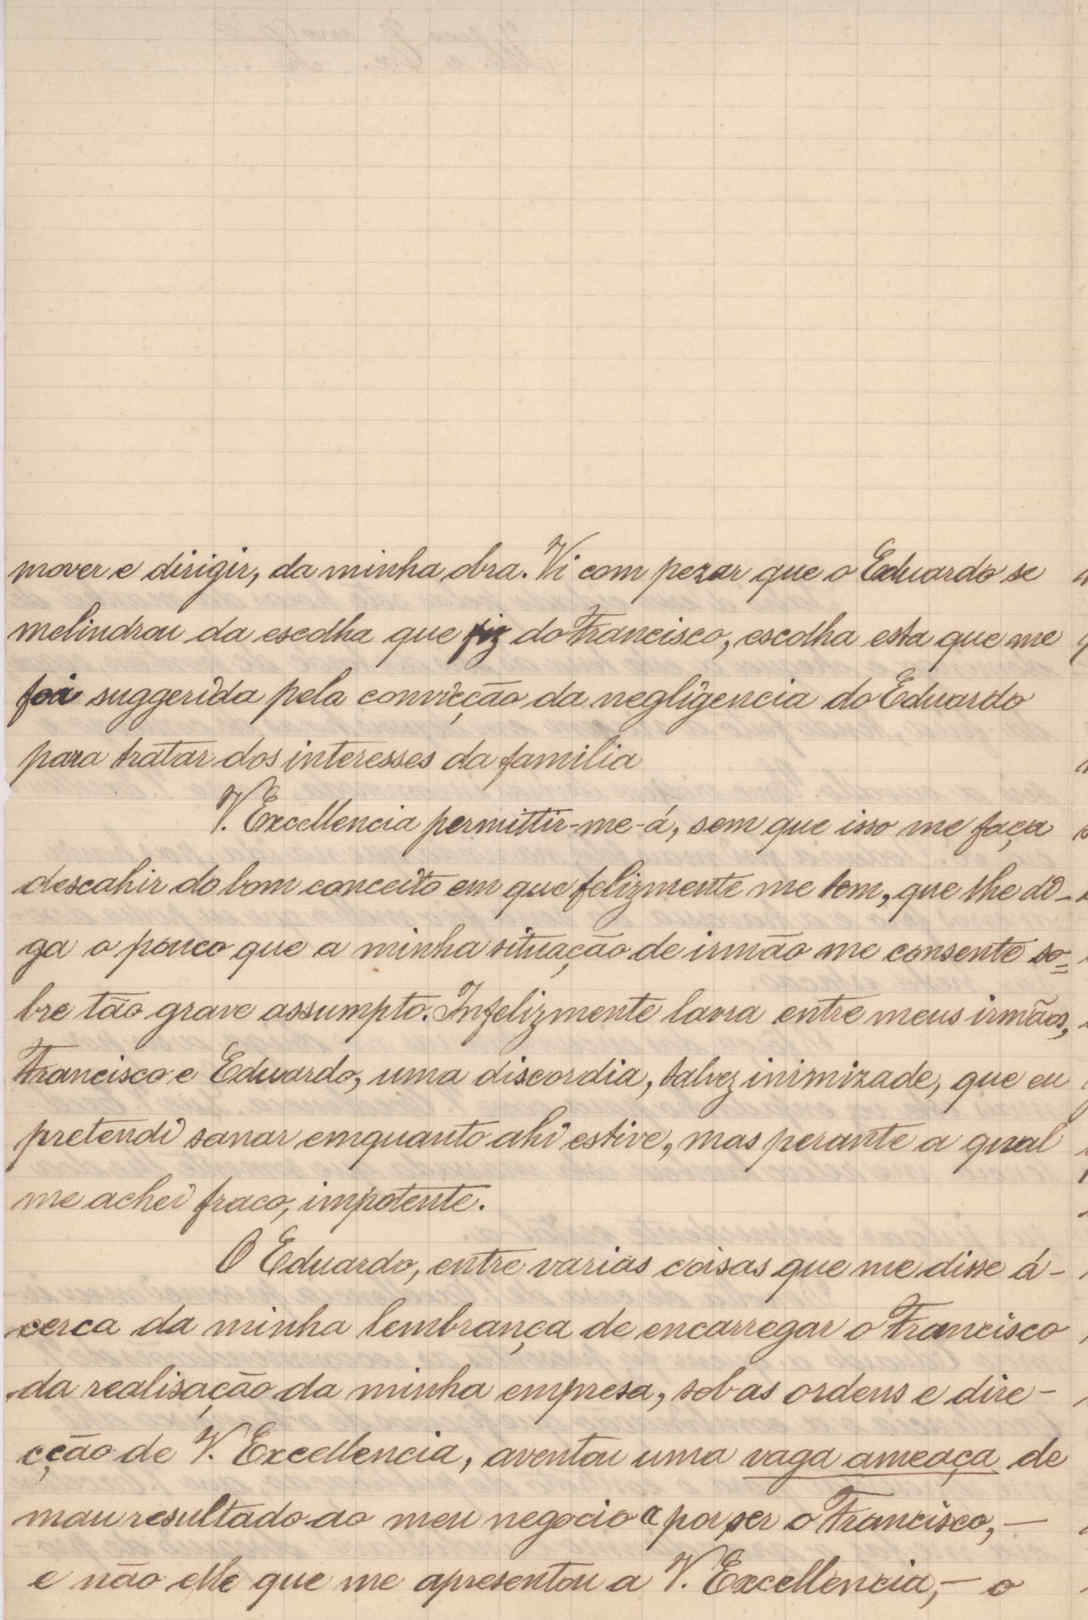 mover e dirigir, da minha obra. Vi com pezar que o Eduardo se
melindrou da escolha que fiz do Francisco, escolha esta que me
foi suggerida pela convicção da negligencia do Eduardo
para tratar dos interesses da familia
V. Excellencia permittir-me-á, sem que isso me faça
descahir do bom conceito em que felizmente me tem, que lhe di-
ga o pouco que a minha situação de irmão me consente so=
bre tão grave assumpto. Infelizmente lavra entre meus irmãos,
Francisco e Eduardo, uma discordia, talvez inimizade, que eu
pretendi sanar emquanto ahi estive, mas perante a qual
me achei fraco, impotente.
O Eduardo, entre varias coisas que me disse á-
cerca da minha lembrança de encarregar o Francisco
da realisação da minha empresa, sob as ordens e dire-
cção de V. Excellencia, aventou uma vaga ameaça de
mau resultado ao meu negocio por ser o Francisco, —
e não elle que me apresentou a V. Excellencia, — o